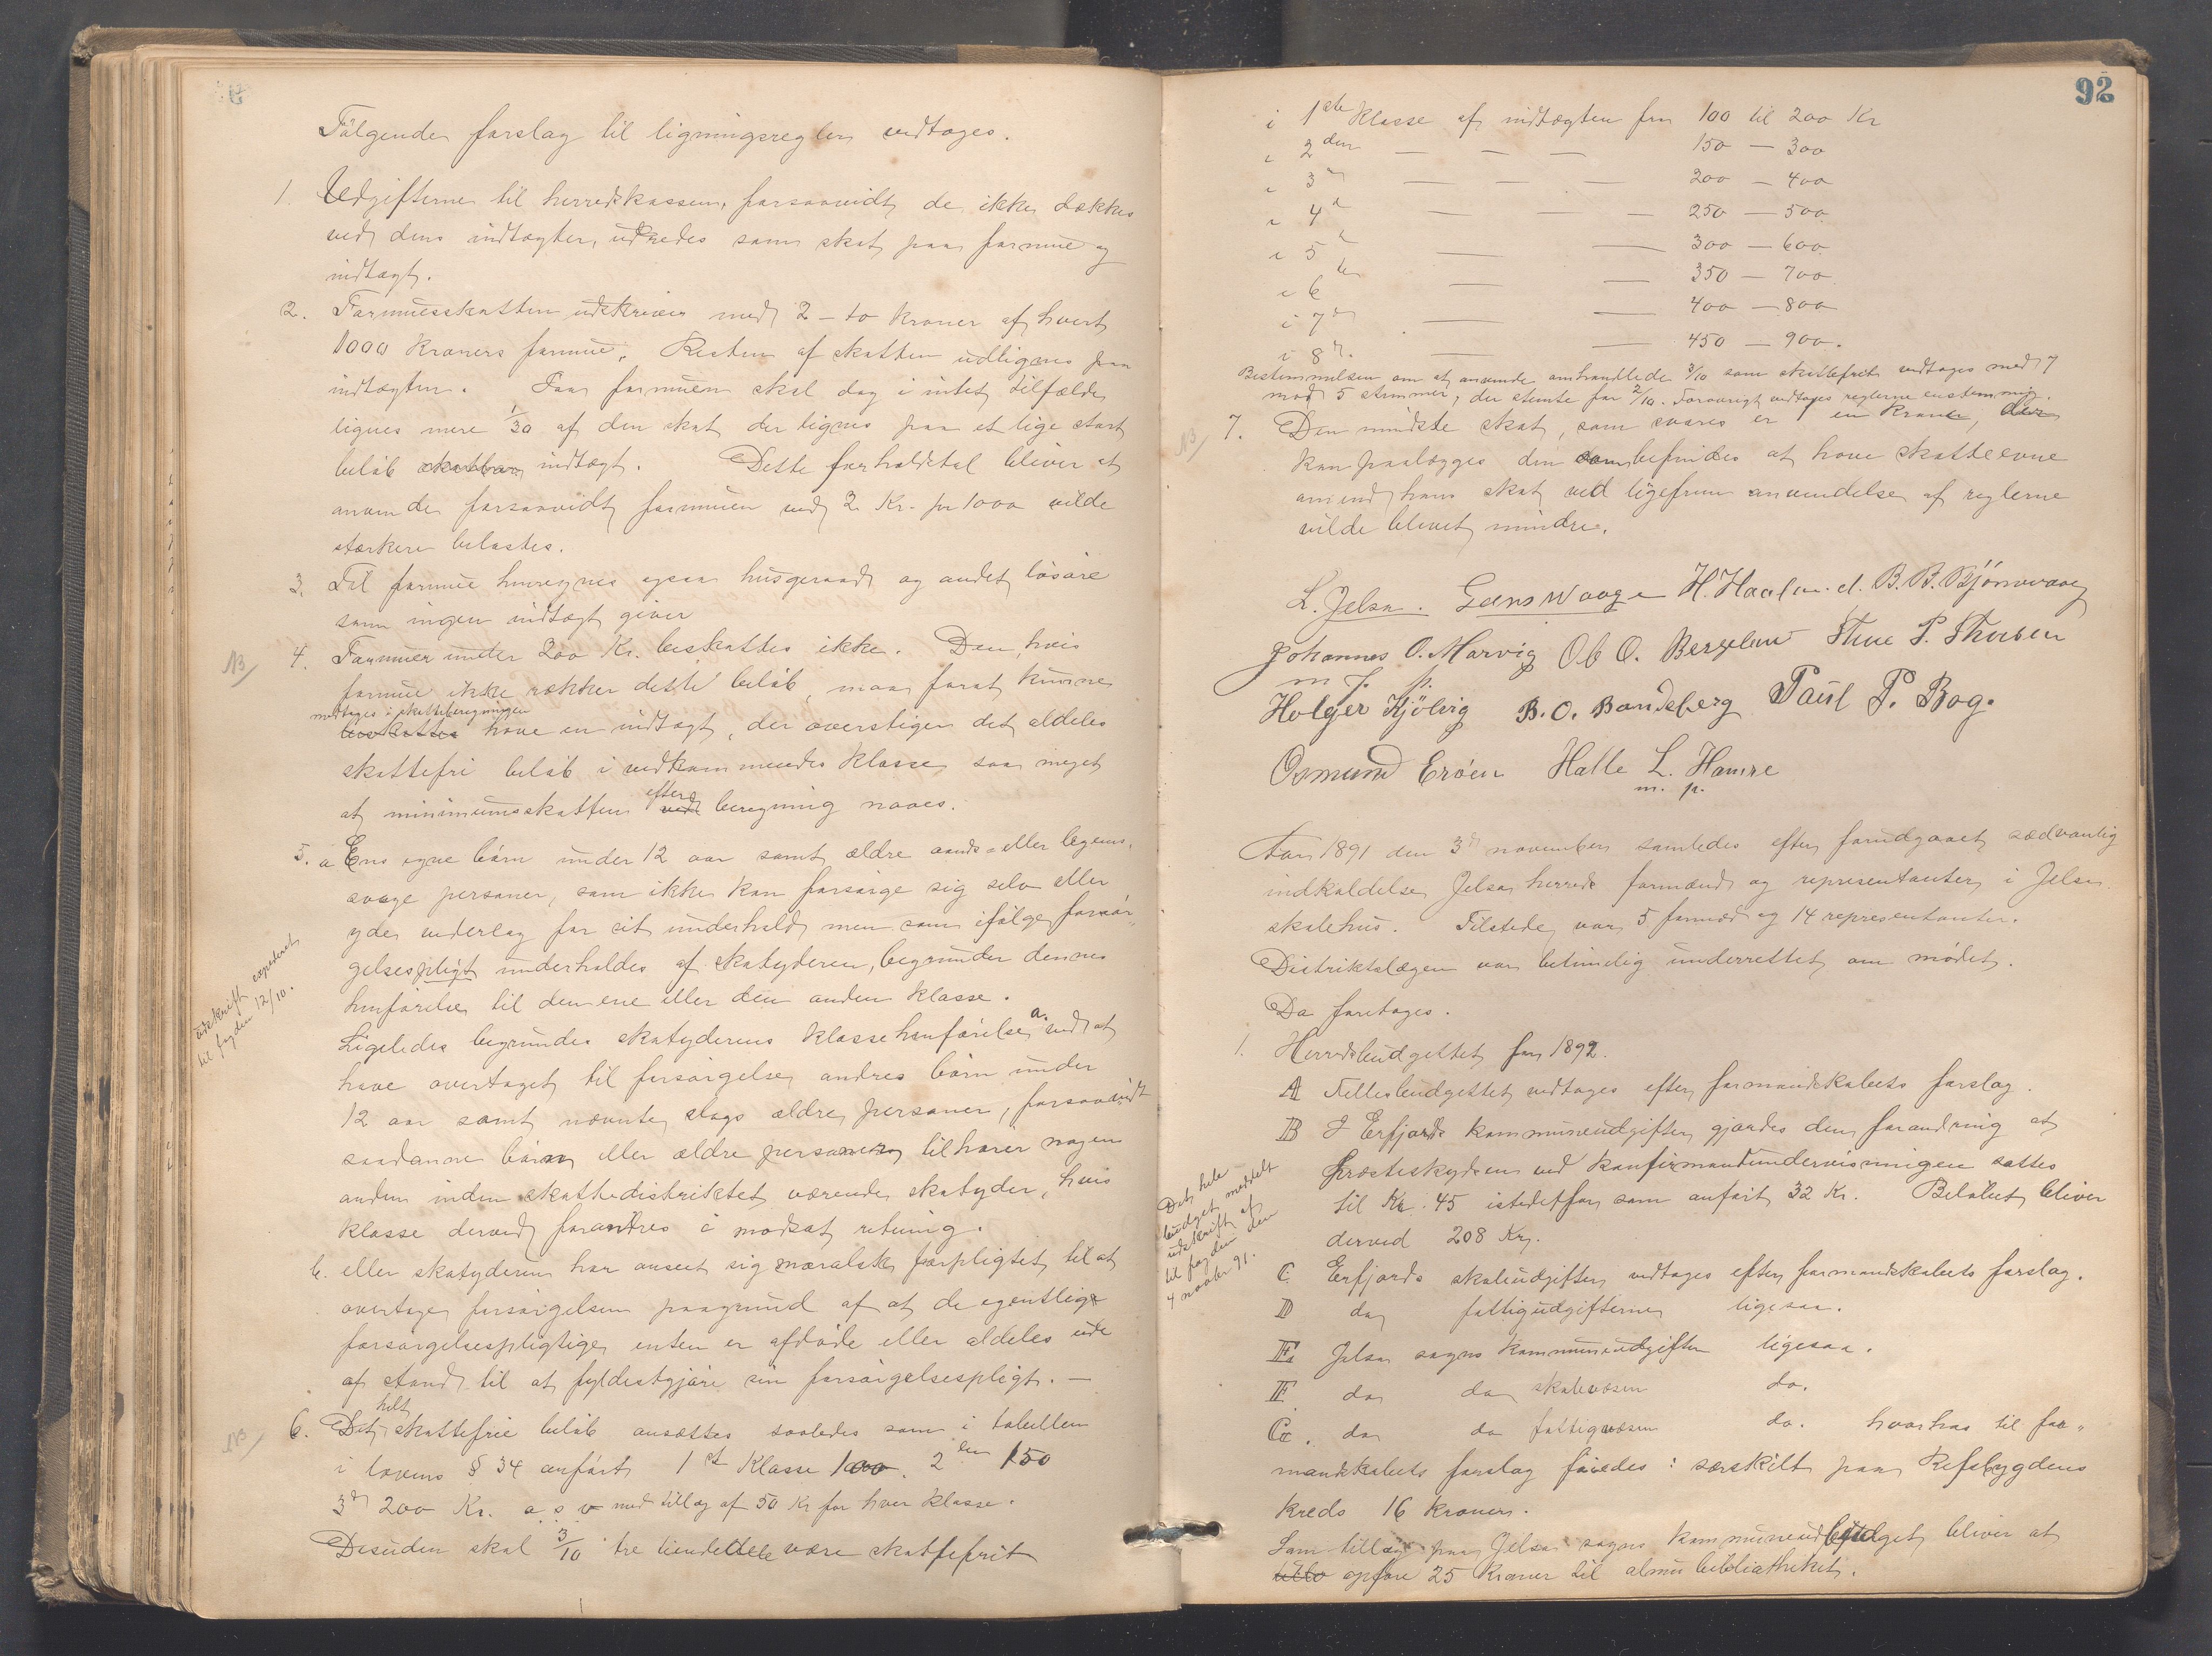 Følgende forslag til ligningsregler vedtoges.
1. Udgifterne til herredskassen, forsaavidt de ikke dækkes
ved dens indtægter, udredes som skat paa formue og
indtægt.
2. Formuesskatten udskrives med 2 - to kroner af hvert
1000 kroners formue. Resten af skatten udlignes paa
indtægten. Paa formuen skal dog i intet tilfælde
lignes mere 1/30 af den skat der lignes paa et lige stort
beløb skatbar indtægt. Dette forholdstal bliver at
anvende forsaavidt formuen med 2 Kr. pr 1000 vilde
stærkere belastes.
3. Til formue henregnes ogsaa husgeraad og andet løsøre
som ingen indtægt giver
NB
4. Formuer under 200 Kr. beskattes ikke. Den, hvis
formue ikke rækker dette beløb, maa forat kunne
medtages i skatteberegningen
beskattes have en indtægt, der overstiger det aldeles
skattefri beløb i vedkommendes klasse saa meget
at minimumsskatten efter ved beregning naaes.
5. a Ens egne børn under 12 aar samt ældre aands- eller legems-
svage personer, som ikke kan forsørge sig selv eller
yde vederlag for sit underhold men som ifølge forsør-
gelsespligt underholdes af skatyderen, begrunder dennes
henførelse til den ene eller den anden klasse.
udskrift expederet
til fogden 12/10.
Ligeledes begrundes skatyderens klassehenførelse a. ved at
have overtaget til forsørgelse andres børn under
12 aar samt nævnte slags ældre personer, forsaavidt
saadanne børn eller ældre personer tilhører nogen
anden inden skattedistriktet værende skatyder, hvis
klasse derved forandres i modsat retning.
b. eller skatyderen har anseet sig moralsk forpligtet til at
overtage forsørgelsen paagrund af at de egentlige
forsørgelsespligtige enten er afdøde eller aldeles ude
af stand til at fyldestgjøre sin forsørgelsespligt. —
NB
6. Det helt skattefrie beløb ansættes saaledes som i tabellen
i lovens § 34 anført 1ste Klasse 100. 2den 150
3de 200 Kr. o. s. v med tillæg af 50 Kr for hver klasse.
Desuden skal 3/10 tre tiendedele være skattefrit
92
i 1ste Klasse af indtægten fra 100 til 200 Kr
i 2den — — — 150 — 300
i 3de — — — 200 — 400
i 4de — — — 250 — 500
i 5te — — 300 — 600
i 6te — — 350 — 700
i 7de — — 400 — 800
i 8de. — — 450 — 900.
Bestemmelsen om at anvende omhandlede 3/10 som skattefrit vedtoges med 7
mod 5 stemmer, der stemte for 2/10. Forøvrigt vedtoges reglerne enstemmig.
NB
7. Den mindste skat, som svares er 1 en krone, der
kan paalægges den som befindes at have skatteevne
omend hans skat ved ligefrem anvendelse af reglerne
vilde blevet mindre.
L. Jelsa. Geens Waage H. Haalan. d. B. B. Bjørnevaag
Johannes O. Marvig Ole O. Bergeland Thue P. Thuesen
m. f. p.
Holger Hjølvig B. O. Bandsberg Paul P. Bog.
Osmund Erøen Halle L. Hamre
m. p.
Aar 1891 den 3de november samledes efter forudgaaet sædvanlig
indkaldelse Jelsa herreds formænd og representanter i Jelsa
skolehus. Tilstede var 5 formænd og 14 representanter.
Distriktslægen var betimelig underrettet om mødet.
Da foretoges.
1. Herredsbudgettet for 1892.
A Fellesbudgettet vedtoges efter formandskabets forslag.
B I Erfjords kommuneudgifter gjordes den forandring at
presteskydsen ved konfirmandundervisningen sattes
til Kr. 45 istedetfor som anført 32 Kr. Beløbet bliver
derved 208 Kr.
Det hele
budget meddelt
udskrift af
til fogden den
4 novbr 91.
C Erfjords skoleudgifter vedtoges efter formandskabets forslag.
D do fattigudgifterne ligesaa.
E Jelsa sogns kommuneudgifter ligesaa.
F. do do skolevæsen do.
G. do do fattigvæsen do. hvorhos til for-
mandskabets forslag føiedes: særskilt paa Refsbygdens
kreds 16 kroner.
Som tillæg paa Jelsa sogns kommunebudget bliver at
opføre 25 Kroner til almuebibliotheket.